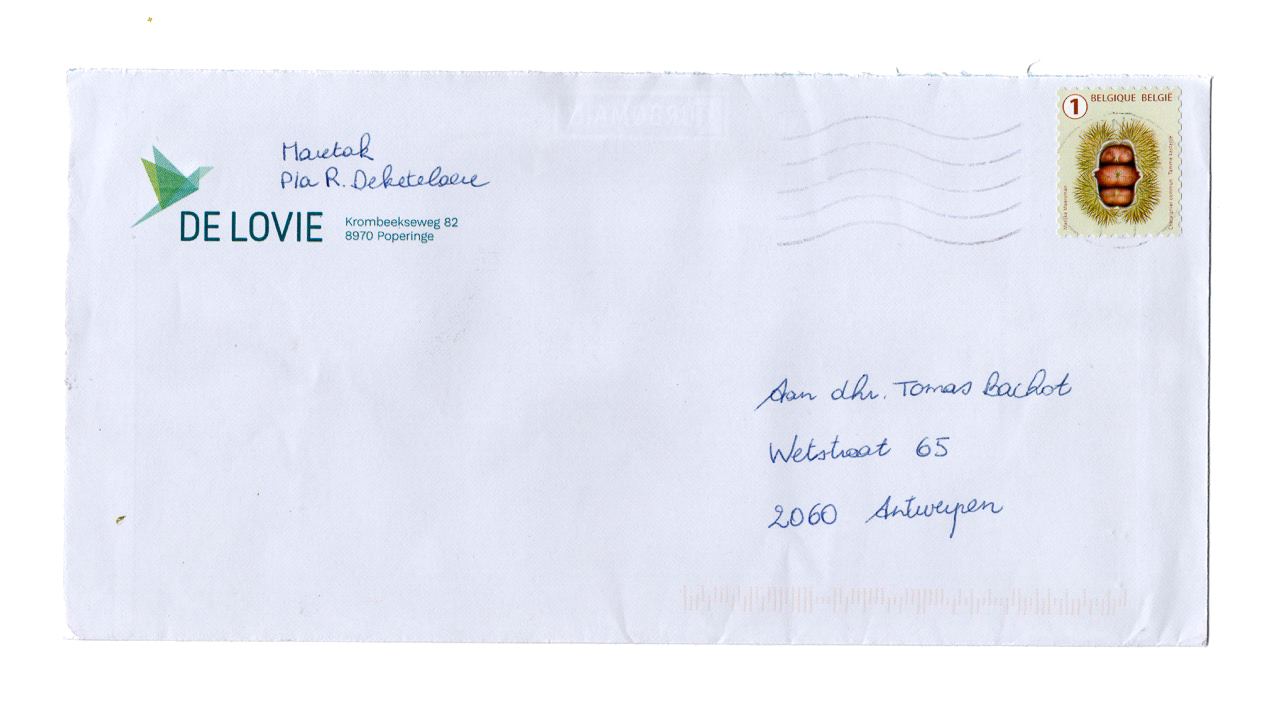 Maretak
P/a R. Deketelaere
DE LOVIE
Krombeekseweg 82
8970 Poperinge
1 BELGIQUE BELGIË
Châtaignier commun Tamme kastanje
Aan dhr. Tomas Bachot
Wetstraat 65
2060 Antwerpen